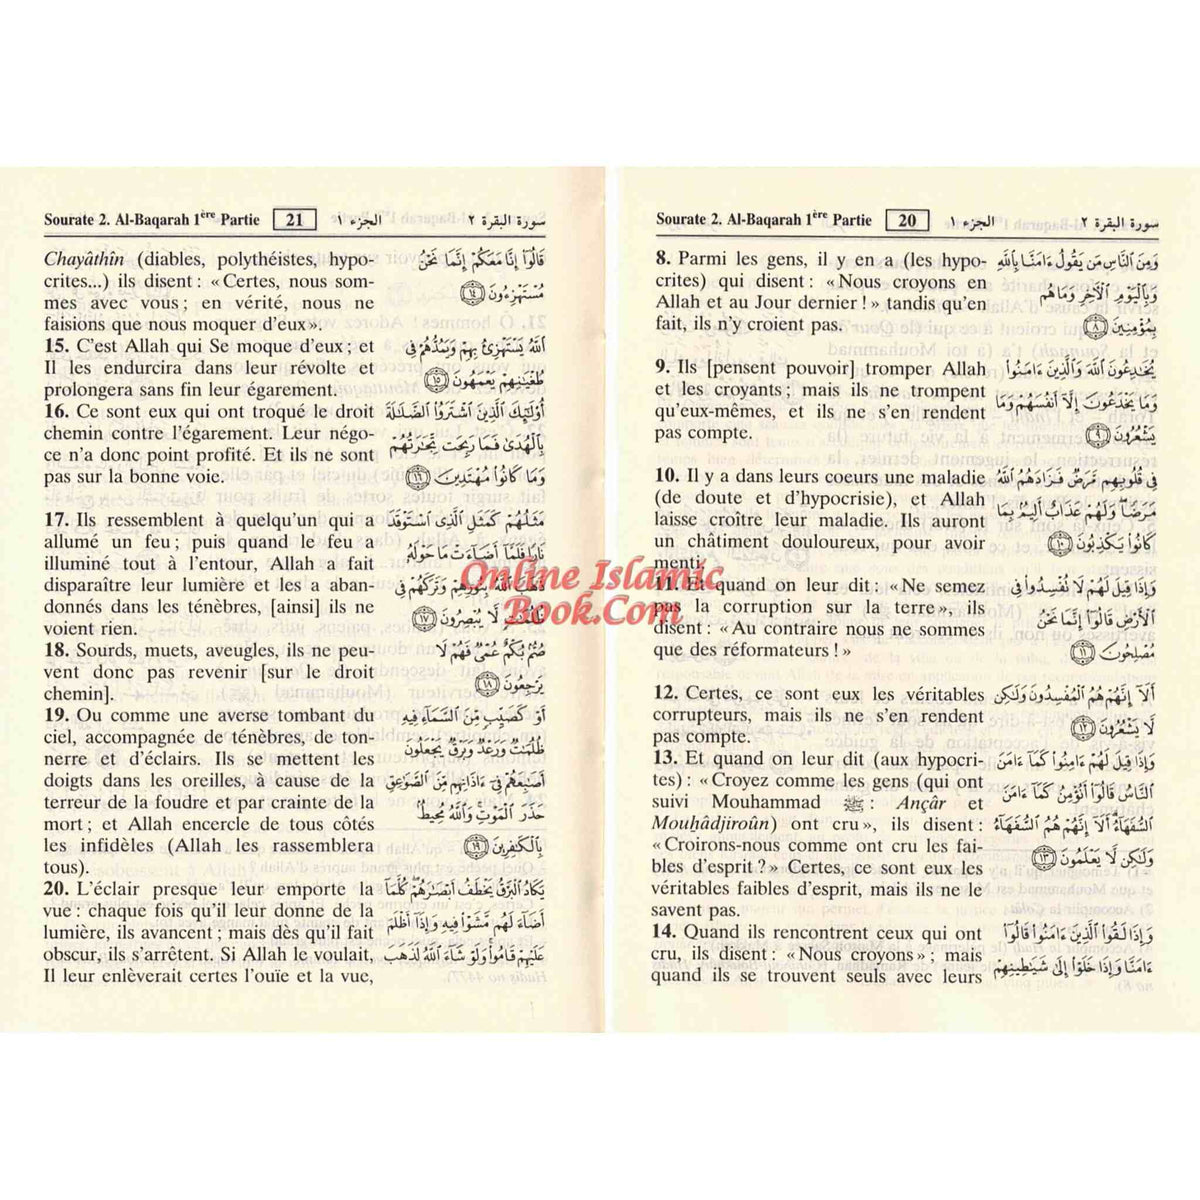 Sourate 2. Al-Baqarah 1ère Partie 20 الجزء ١ سورة البقرة ٢
8. Parmi les gens, il y en a (les hypo-
crites) qui disent : « Nous croyons en
Allah et au Jour dernier ! » tandis qu'en
fait, ils n'y croient pas.
9. Ils [pensent pouvoir] tromper Allah
et les croyants ; mais ils ne trompent
qu'eux-mêmes, et ils ne s'en rendent
pas compte.
10. Il y a dans leurs coeurs une maladie
(de doute et d'hypocrisie), et Allah
laisse croître leur maladie. Ils auront
un châtiment douloureux, pour avoir
menti.
11. Et quand on leur dit : « Ne semez
pas la corruption sur la terre », ils
disent : « Au contraire nous ne sommes
que des réformateurs ! »
12. Certes, ce sont eux les véritables
corrupteurs, mais ils ne s'en rendent
pas compte.
13. Et quand on leur dit (aux hypocri-
tes) : « Croyez comme les gens (qui ont
suivi Mouhammad ﷺ : Ançâr et
Mouḥâdjiroûn) ont cru », ils disent :
« Croirons-nous comme ont cru les fai-
bles d'esprit ? » Certes, ce sont eux les
véritables faibles d'esprit, mais ils ne le
savent pas.
14. Quand ils rencontrent ceux qui ont
cru, ils disent : « Nous croyons » ; mais
quand ils se trouvent seuls avec leurs
وَمِنَ ٱلنَّاسِ مَن يَقُولُ ءَامَنَّا بِٱللَّهِ
وَبِٱلۡيَوۡمِ ٱلۡأٓخِرِ وَمَا هُم
بِمُؤۡمِنِينَ ٨
يُخَٰدِعُونَ ٱللَّهَ وَٱلَّذِينَ ءَامَنُواْ
وَمَا يَخۡدَعُونَ إِلَّآ أَنفُسَهُمۡ وَمَا
يَشۡعُرُونَ ٩
فِي قُلُوبِهِم مَّرَضٞ فَزَادَهُمُ ٱللَّهُ
مَرَضٗاۖ وَلَهُمۡ عَذَابٌ أَلِيمُۢ بِمَا
كَانُواْ يَكۡذِبُونَ ١٠
وَإِذَا قِيلَ لَهُمۡ لَا تُفۡسِدُواْ فِي
ٱلۡأَرۡضِ قَالُوٓاْ إِنَّمَا نَحۡنُ
مُصۡلِحُونَ ١١
أَلَآ إِنَّهُمۡ هُمُ ٱلۡمُفۡسِدُونَ وَلَٰكِن
لَّا يَشۡعُرُونَ ١٢
وَإِذَا قِيلَ لَهُمۡ ءَامِنُواْ كَمَآ ءَامَنَ
ٱلنَّاسُ قَالُوٓاْ أَنُؤۡمِنُ كَمَآ ءَامَنَ
ٱلسُّفَهَآءُۗ أَلَآ إِنَّهُمۡ هُمُ ٱلسُّفَهَآءُ
وَلَٰكِن لَّا يَعۡلَمُونَ ١٣
وَإِذَا لَقُواْ ٱلَّذِينَ ءَامَنُواْ قَالُوٓاْ
ءَامَنَّا وَإِذَا خَلَوۡاْ إِلَىٰ شَيَٰطِينِهِمۡ
Sourate 2. Al-Baqarah 1ère Partie 21 الجزء ١ سورة البقرة ٢
Chayâthîn (diables, polythéistes, hypo-
crites...) ils disent : « Certes, nous som-
mes avec vous ; en vérité, nous ne
faisions que nous moquer d'eux ».
15. C'est Allah qui Se moque d'eux ; et
Il les endurcira dans leur révolte et
prolongera sans fin leur égarement.
16. Ce sont eux qui ont troqué le droit
chemin contre l'égarement. Leur négo-
ce n'a donc point profité. Et ils ne sont
pas sur la bonne voie.
17. Ils ressemblent à quelqu'un qui a
allumé un feu ; puis quand le feu a
illuminé tout à l'entour, Allah a fait
disparaître leur lumière et les a aban-
donnés dans les ténèbres, [ainsi] ils ne
voient rien.
18. Sourds, muets, aveugles, ils ne peu-
vent donc pas revenir [sur le droit
chemin].
19. Ou comme une averse tombant du
ciel, accompagnée de ténèbres, de ton-
nerre et d'éclairs. Ils se mettent les
doigts dans les oreilles, à cause de la
terreur de la foudre et par crainte de la
mort ; et Allah encercle de tous côtés
les infidèles (Allah les rassemblera
tous).
20. L'éclair presque leur emporte la
vue : chaque fois qu'il leur donne de la
lumière, ils avancent ; mais dès qu'il fait
obscur, ils s'arrêtent. Si Allah le voulait,
Il leur enlèverait certes l'ouïe et la vue,
قَالُوٓاْ إِنَّا مَعَكُمۡ إِنَّمَا نَحۡنُ
مُسۡتَهۡزِءُونَ ١٤
ٱللَّهُ يَسۡتَهۡزِئُ بِهِمۡ وَيَمُدُّهُمۡ فِي
طُغۡيَٰنِهِمۡ يَعۡمَهُونَ ١٥
أُوْلَٰٓئِكَ ٱلَّذِينَ ٱشۡتَرَوُاْ ٱلضَّلَٰلَةَ
بِٱلۡهُدَىٰ فَمَا رَبِحَت تِّجَٰرَتُهُمۡ
وَمَا كَانُواْ مُهۡتَدِينَ ١٦
مَثَلُهُمۡ كَمَثَلِ ٱلَّذِي ٱسۡتَوۡقَدَ
نَارٗا فَلَمَّآ أَضَآءَتۡ مَا حَوۡلَهُۥ
ذَهَبَ ٱللَّهُ بِنُورِهِمۡ وَتَرَكَهُمۡ فِي
ظُلُمَٰتٖ لَّا يُبۡصِرُونَ ١٧
صُمُّۢ بُكۡمٌ عُمۡيٞ فَهُمۡ لَا
يَرۡجِعُونَ ١٨
أَوۡ كَصَيِّبٖ مِّنَ ٱلسَّمَآءِ فِيهِ
ظُلُمَٰتٞ وَرَعۡدٞ وَبَرۡقٞ يَجۡعَلُونَ
أَصَٰبِعَهُمۡ فِيٓ ءَاذَانِهِم مِّنَ ٱلصَّوَٰعِقِ
حَذَرَ ٱلۡمَوۡتِۚ وَٱللَّهُ مُحِيطُۢ
بِٱلۡكَٰفِرِينَ ١٩
يَكَادُ ٱلۡبَرۡقُ يَخۡطَفُ أَبۡصَٰرَهُمۡۖ كُلَّمَآ
أَضَآءَ لَهُم مَّشَوۡاْ فِيهِ وَإِذَآ أَظۡلَمَ
عَلَيۡهِمۡ قَامُواْۚ وَلَوۡ شَآءَ ٱللَّهُ لَذَهَبَ
Online Islamic
Book.Com